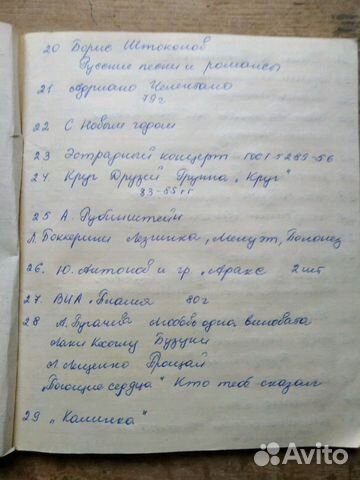 20 Борис Штоколов
Русские песни и романсы
21 Адриано Челентано
79г
22 С Новым годом
23 Эстрадный концерт ГОСТ 5289-56
24 Круг Друзей Группа "Круг"
83-85гг
25 А. Рубинштейн
Л. Боккерини Лезгинка, Менуэт, Полонез
26. Ю. Антонов и гр. "Аракс 2шт
27. ВИА "Пламя 80г
28 А. Пугачева Любовь одна виновата
Лаки Кхоту Бузуки
Л. Лещенко Прощай
"Поющие сердца" Кто тебе сказал
29 "Калинка"
Avito